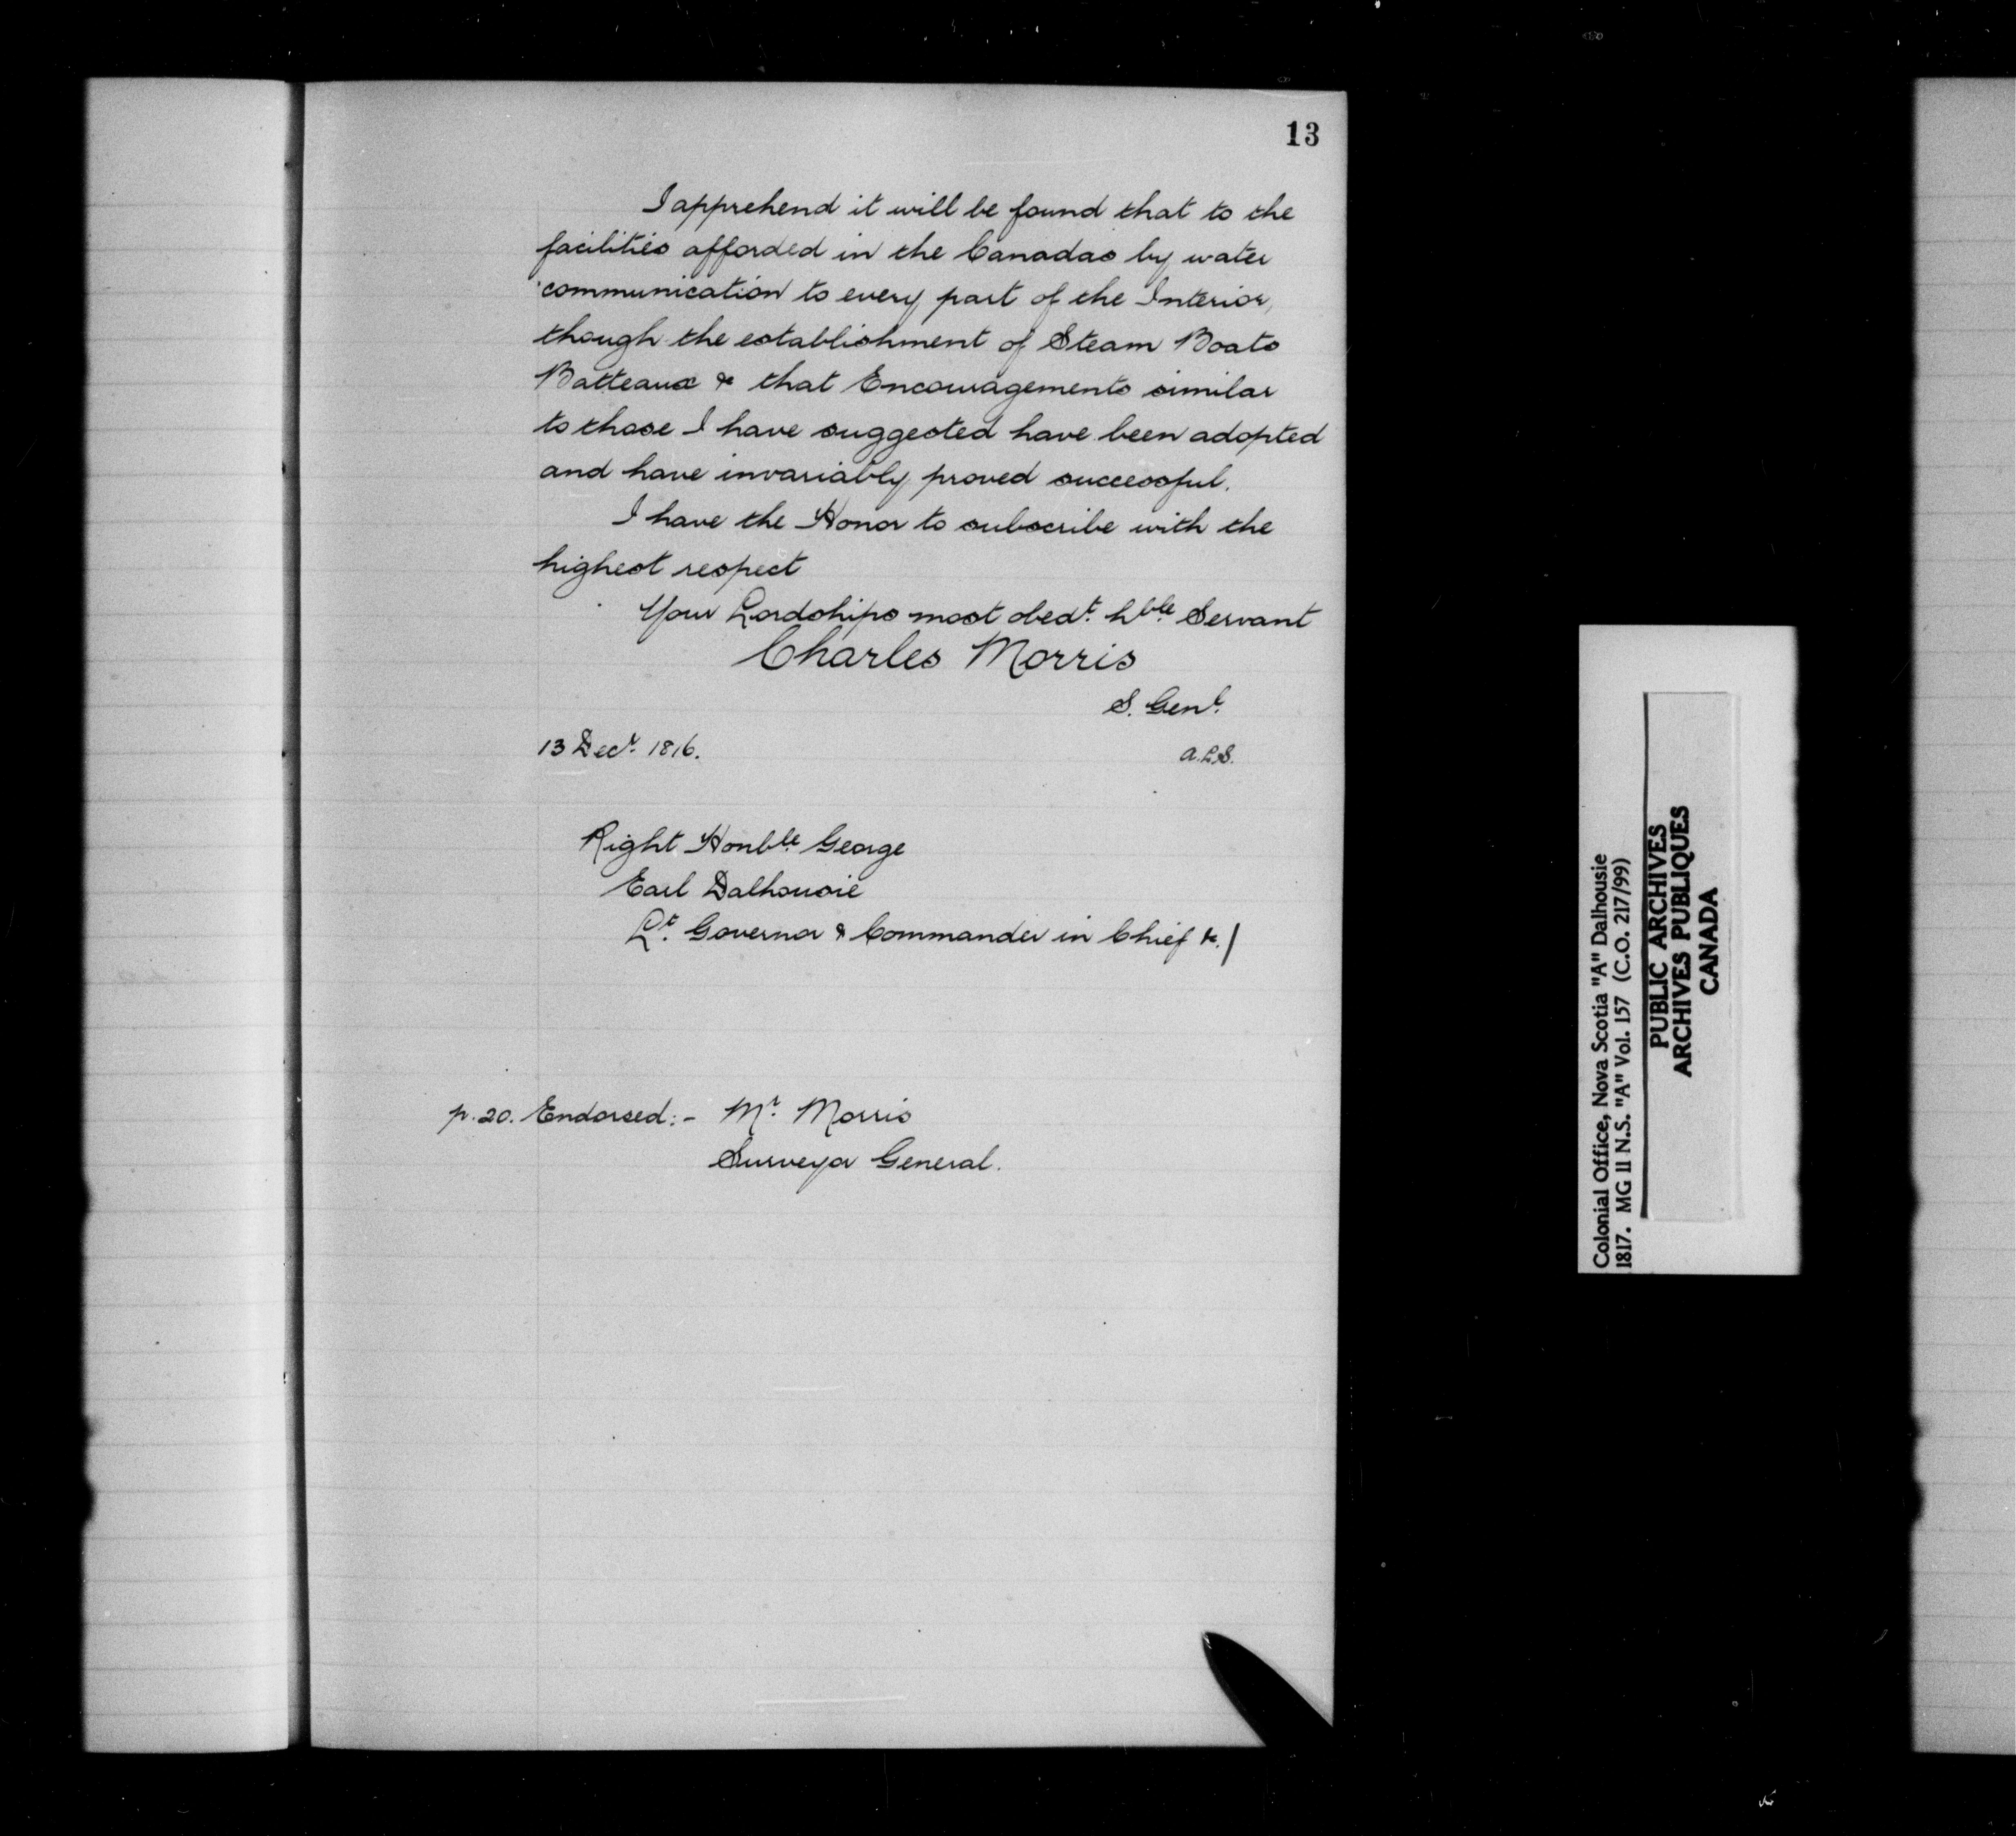 13
I apprehend it will be found that to the
facilities afforded in the Canadas by water
communication to every part of the Interior,
though the establishment of Steam Boats
Batteaux & that Encouragements similar
to those I have suggested have been adopted
and have invariably proved successful.
I have the Honor to subscribe with the
highest respect
Your Lordships most obedt. hble. Servant
Charles Morris
S. Genl.
13 Decr. 1816.
A.L.S.
Right Honble. George
Earl Dalhousie
Lt. Governor & Commander in Chief &c./
p. 20. Endorsed:- Mr. Morris
Surveyor General.
Colonial Office, Nova Scotia "A" Dalhousie
1817. MG 11 N.S. "A" Vol. 157 (C.O. 217/99)
PUBLIC ARCHIVES
ARCHIVES PUBLIQUES
CANADA